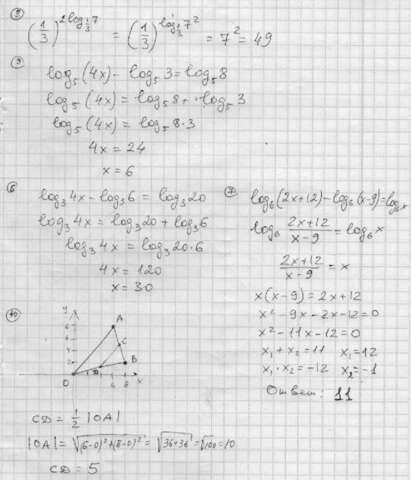 ⑤
(1/3)^(2 log_(1/3) 7) = (1/3)^(log_(1/3) 7²) = 7² = 49
log₅(4x) - log₅3 = log₅8
log₅(4x) = log₅8 + log₅3
log₅(4x) = log₅8·3
4x = 24
x = 6
⑥
log₃4x - log₃6 = log₃20
log₃4x = log₃20 + log₃6
log₃4x = log₃20·6
4x = 120
x = 30
⑦
log₆(2x+12) - log₆(x-9) = log₆x
log₆ (2x+12)/(x-9) = log₆x
(2x+12)/(x-9) = x
x(x-9) = 2x+12
x² - 9x - 2x - 12 = 0
x² - 11x - 12 = 0
x₁ + x₂ = 11 x₁ = 12
x₁ · x₂ = -12 x₂ = -1
Ответ: 11
⑩
y
A
6
C
4
2
B
0
D
6 8 x
CD = ½ |OA|
|OA| = √((6-0)²+(8-0)²) = √(36+36) = √100 = 10
CD = 5